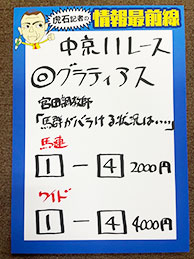 虎石記者の
情報最前線
中京11レース
◎グラティアス
宮田調教師
「馬群がバラける状況は…」
馬連
1-4 2000円
ワイド
1-4 4000円